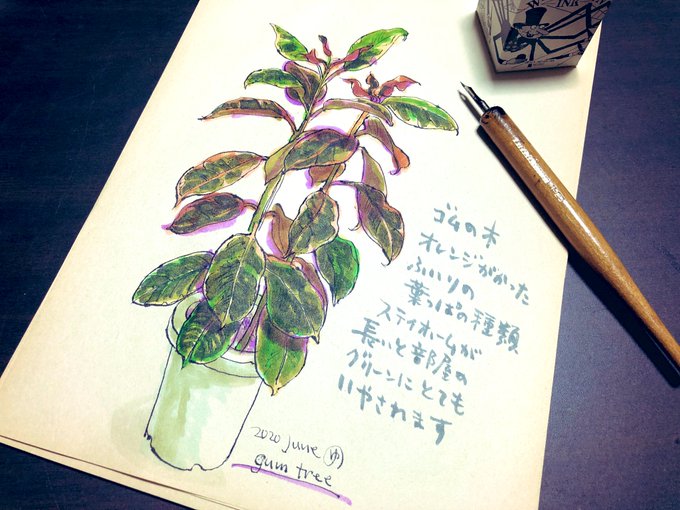 ゴムの木
オレンジがかった
ふいりの
葉っぱの種類
ステイホームが
長いと部屋の
グリーンにとても
いやされます
2020 June ゆ
gum tree
INK